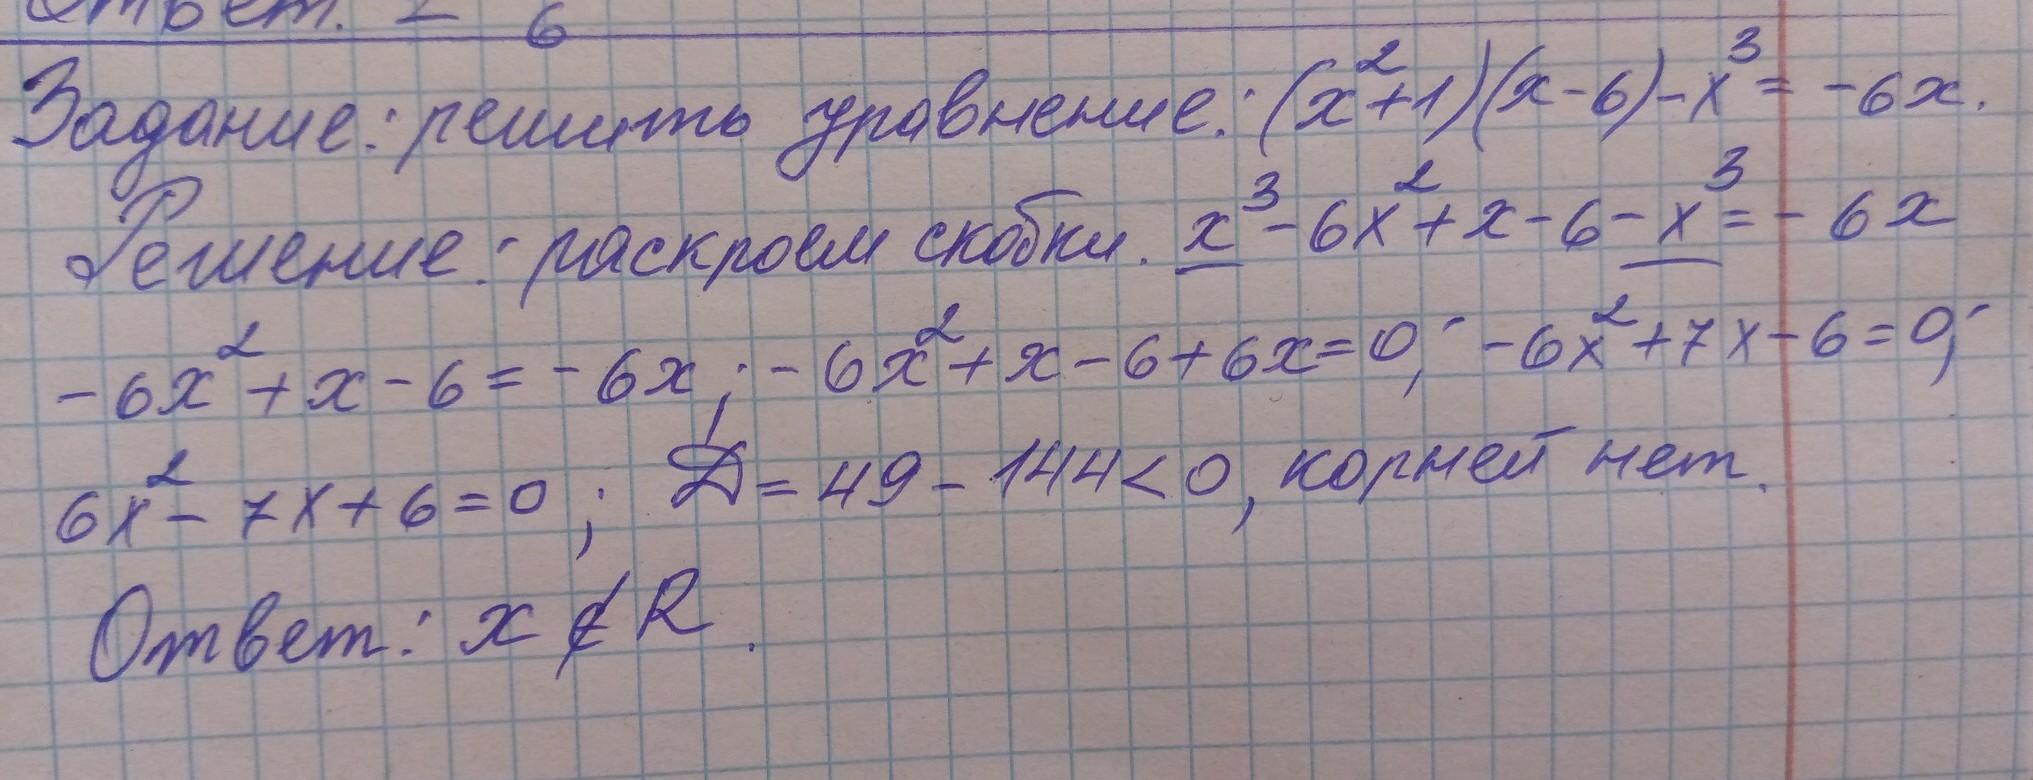 Ответ: – 6
Задание: решить уравнение: (x²+1)(x-6)-x³= -6x.
Решение: раскроем скобки. x³-6x²+x-6-x³=-6x
-6x²+x-6=-6x; -6x²+x-6+6x=0; -6x²+7x-6=0;
6x²-7x+6=0; D=49-144<0, корней нет.
Ответ: x∉R.